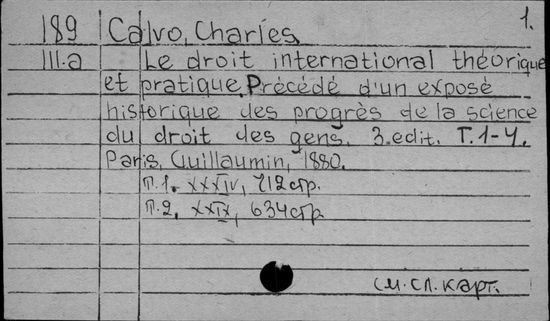 1.
189 Calvo, Charles
III.a Le droit international théorique
et pratique. Précédé d'un exposé
historique des progrès de la science
du droit des gens. 3.edit. T.1-4.
Paris, Guillaumin, 1880.
т.1. XXXIV, 712 стр.
т.2. XXIX, 634 стр
см. сл. карт.